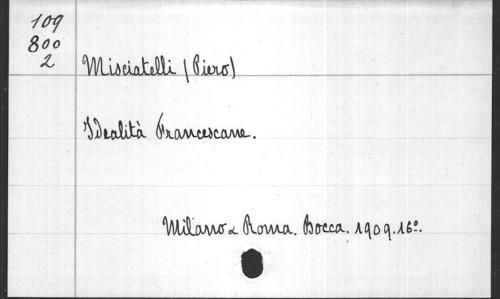 109
800
2
Misciatelli (Piero)
Idealità Francescane.
Milano & Roma. Bocca. 1909. 16º.